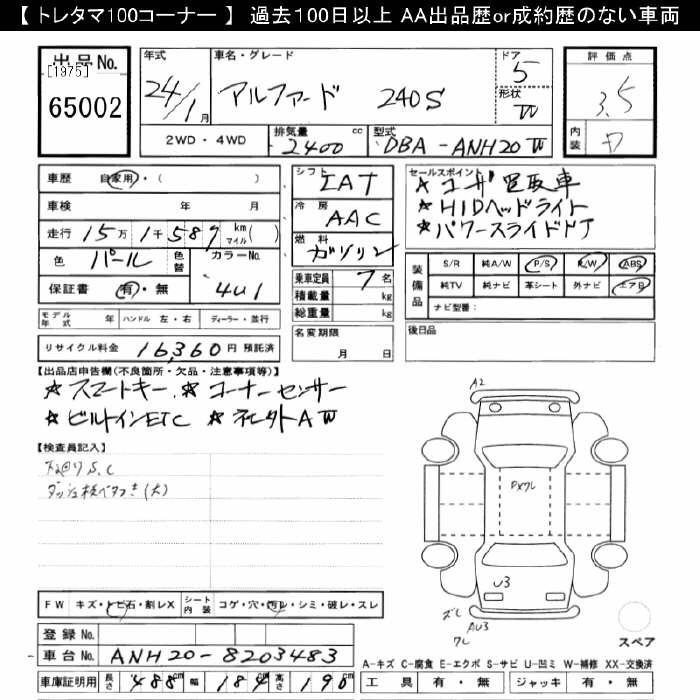 【 トレタマ100コーナー 】 過去100日以上 AA出品歴or成約歴のない車両
出品No.
[1975]
65002
年式 24/1月 車名・グレード アルファード 240S ドア 5 形状 W
評価点 3.5
内装
2WD・4WD 排気量 2400 cc 型式 DBA-ANH20W
車歴 自家用・( )
車検 年 月
走行 15万1千587 km マイル ( )
色 パール 色替 カラーNo. 4U1
保証書 有・無
モデル年式 年 ハンドル 左・右 ディーラー・並行
リサイクル料金 16,360円 預託済
シフト IAT
冷房 AAC
燃料 ガソリン
乗車定員 7名
積載量 kg
総重量 kg
名変期限 月 日
セールスポイント
★HIDヘッドライト
★パワースライドドア
装備品 S/R 純A/W P/S R/W ABS
純TV 純ナビ 革シート 外ナビ エアB
ナビ型番:
後日品
【出品店申告欄(不良箇所・欠品・注意事項等)】
★スマートキー ★コーナーセンサー
★ビルトインETC
【検査員記入】
下回りS.C
ダッシュ板ベタつき(大)
A2
U3
AU3
ズレ
ワレ
スペア
FW キズ・トビ石・割レX シート内装 コゲ・穴・汚レ・シミ・破レ・スレ
登録No.
車台No. ANH20-8203483
車庫証明用 長さ 488cm 幅 184cm 高さ 190cm
A-キズ C-腐食 E-エクボ S-サビ U-凹ミ W-補修 XX-交換済
工具 有・無 ジャッキ 有・無